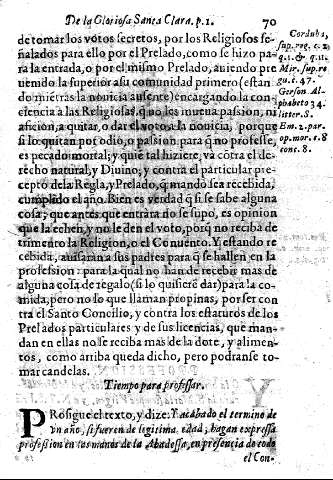 De la Gloriosa Santa Clara. p. 1. 70
de tomar los votos secretos, por los Religiosos se-
ñalados para ello por el Prelado, como se hizo pa-
ra la entrada, o por el mismo Prelado, auiendo pre
uenido la superior a su comunidad primero (estan
do miētras la nouicia ausente) encargando la con-
ciencia a las Religiosas, q̄ no les mueua passion, ni
aficion, a quitar, o dar el voto a la nouicia, porque
si lo quitan por odio, o passion para q̄ no professe,
es pecado mortal; y que tal hiziere, va cōtra el de-
recho natural, y Diuino; y contra el particular pre-
cepto de la Regla, y Prelado, q̄ manda sea recebida,
cumplido el año. Bien es verdad q̄ si se sabe alguna
cosa, que antes que entrara no se supo, es opinion
que la echen, y no le den el voto, porq̄ no reciba de
trimento la Religion, o el Cōuento. Y estando re
cebida, auisaran a sus padres para q̄ se hallen en la
profession: para la qual no han de recebir mas de
alguna cosa de regalo (si lo quisierē dar) para la co-
mida, pero no lo que llaman propinas, por ser con
tra el Santo Concilio, y contra los estatutos de los
Prelados particulares y de sus licencias, que man-
dan en ellas no se reciba mas de la dote, y alimen-
tos, como arriba queda dicho, pero podranse to-
mar candelas.
Tiempo para professar.
PRosigue el texto, y dize: Y acabado el termino de
vn año, si fueren de legitima edad, hagan expressa
profession en las manos de la Abadessa, en presencia de todo
el Con-
Corduba,
sup. reg. c. 2.
q. 1. & q. 11.
Mir. sup. re
gu. c. 47.
Gerson Al-
phabeto 34.
litter. S.
Em. 2. par.
op. mor. 1. 8
cons. 8.